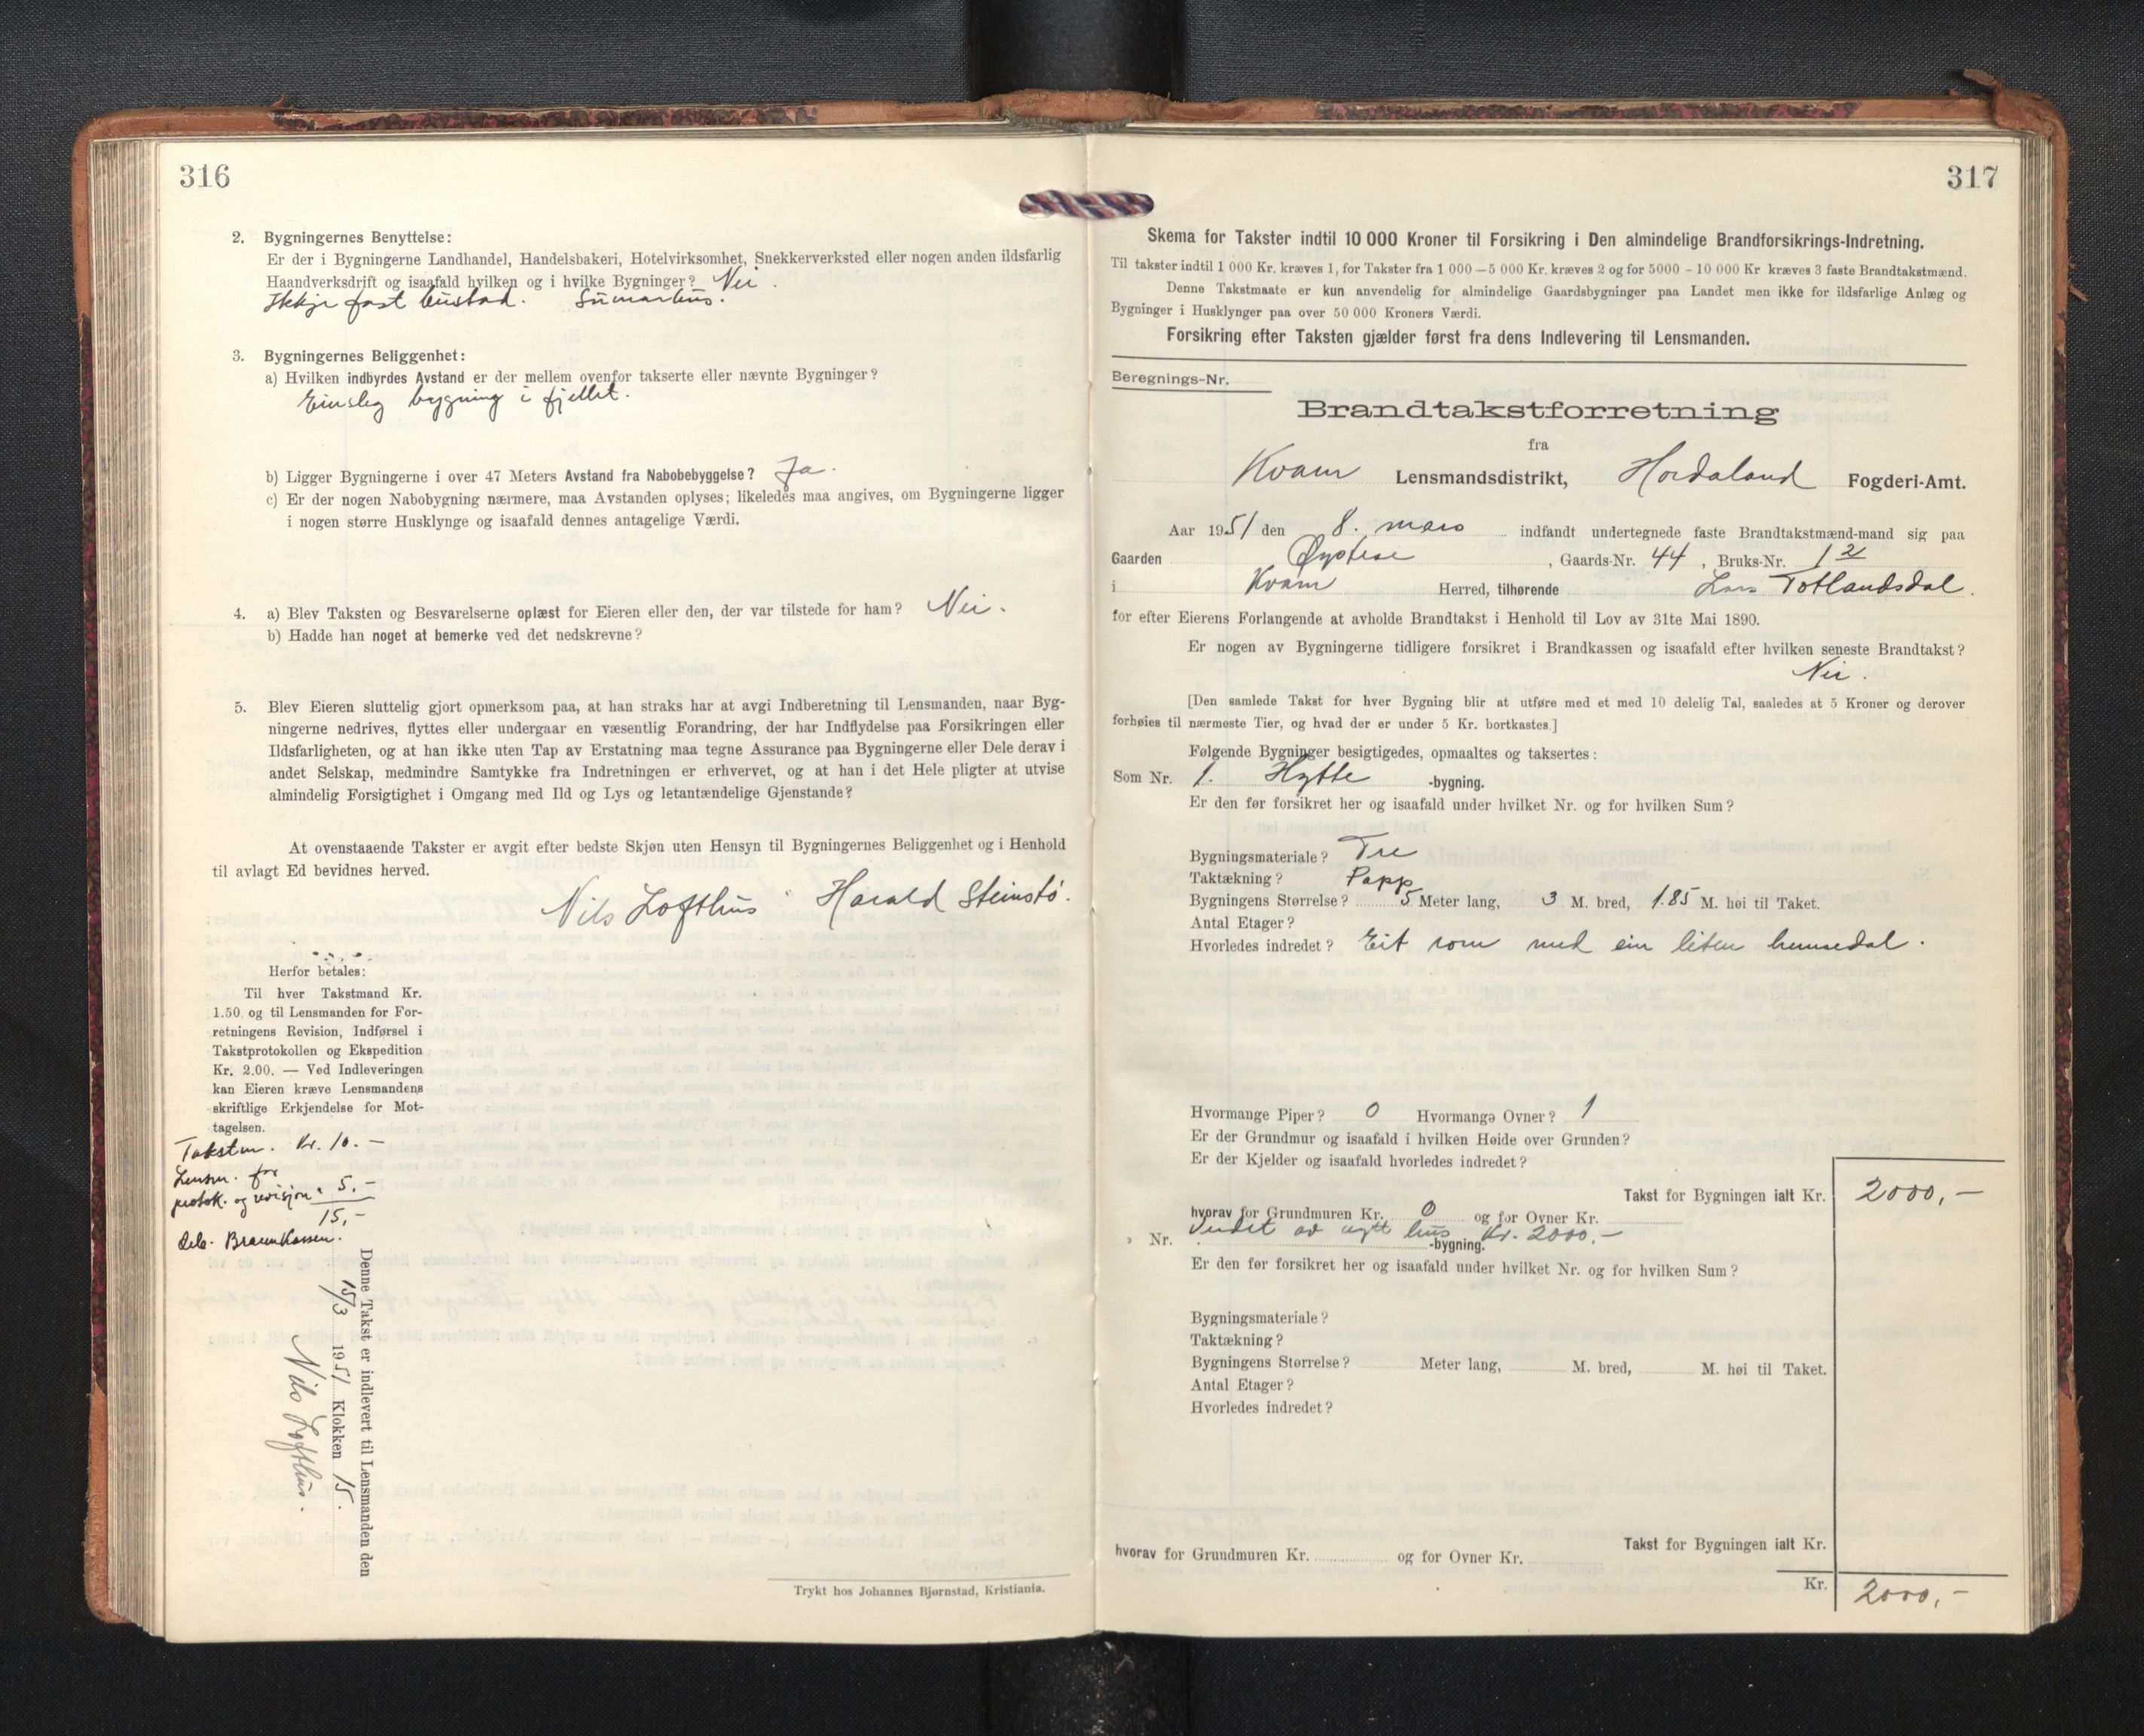 316
2. Bygningernes Benyttelse:
Er der i Bygningerne Landhandel, Handelsbakeri, Hotelvirksomhet, Snekkerverksted eller nogen anden ildsfarlig
Haandverksdrift og isaafald hvilken og i hvilke Bygninger? Nei.
Ikkje fast bustad. Sumarhus.
3. Bygningernes Beliggenhet:
a) Hvilken indbyrdes Avstand er der mellem ovenfor takserte eller nævnte Bygninger?
Einsleg bygning i fjellet.
b) Ligger Bygningerne i over 47 Meters Avstand fra Nabobebyggelse? Ja.
c) Er der nogen Nabobygning nærmere, maa Avstanden oplyses; likeledes maa angives, om Bygningerne ligger
i nogen større Husklynge og isaafald dennes antagelige Værdi.
4. a) Blev Taksten og Besvarelserne oplæst for Eieren eller den, der var tilstede for ham? Nei.
b) Hadde han noget at bemerke ved det nedskrevne?
5. Blev Eieren sluttelig gjort opmerksom paa, at han straks har at avgi Indberetning til Lensmanden, naar Byg-
ningerne nedrives, flyttes eller undergaar en væsentlig Forandring, der har Indflydelse paa Forsikringen eller
Ildsfarligheten, og at han ikke uten Tap av Erstatning maa tegne Assurance paa Bygningerne eller Dele derav i
andet Selskap, medmindre Samtykke fra Indretningen er erhvervet, og at han i det Hele pligter at utvise
almindelig Forsigtighet i Omgang med Ild og Lys og letantændelige Gjenstande?
At ovenstaaende Takster er avgit efter bedste Skjøn uten Hensyn til Bygningernes Beliggenhet og i Henhold
til avlagt Ed bevidnes herved.
Nils Lofthus Harald Steinstø.
Herfor betales:
Til hver Takstmand Kr.
1.50 og til Lensmanden for For-
retningens Revision, Indførsel i
Takstprotokollen og Ekspedition
Kr. 2.00. — Ved Indleveringen
kan Eieren kræve Lensmandens
skriftlige Erkjendelse for Mot-
tagelsen.
Takstm. Kr. 10.—
Lensm. for
protok. og revisjon " 5,—
15,—
Brannkassen.
Denne Takst er indlevert til Lensmanden den
15/3 1951 Klokken 15.
Nils Lofthus.
Trykt hos Johannes Bjørnstad, Kristiania.
317
Skema for Takster indtil 10 000 Kroner til Forsikring i Den almindelige Brandforsikrings-Indretning.
Til takster indtil 1 000 Kr. kræves 1, for Takster fra 1 000 — 5 000 Kr. kræves 2 og for 5000 - 10 000 Kr kræves 3 faste Brandtakstmænd.
Denne Takstmaate er kun anvendelig for almindelige Gaardsbygninger paa Landet men ikke for ildsfarlige Anlæg og
Bygninger i Husklynger paa over 50 000 Kroners Værdi.
Forsikring efter Taksten gjælder først fra dens Indlevering til Lensmanden.
Beregnings-Nr.
Brandtakstforretning
fra
Kvam Lensmandsdistrikt, Hordaland Fogderi-Amt.
Aar 1951 den 8. mars indfandt undertegnede faste Brandtakstmænd-mand sig paa
Gaarden Øystese, Gaards-Nr. 44, Bruks-Nr. 12
i Kvam Herred, tilhørende Lars Totlandsdal.
for efter Eierens Forlangende at avholde Brandtakst i Henhold til Lov av 31te Mai 1890.
Er nogen av Bygningerne tidligere forsikret i Brandkassen og isaafald efter hvilken seneste Brandtakst?
Nei.
[Den samlede Takst for hver Bygning blir at utføre med et med 10 delelig Tal, saaledes at 5 Kroner og derover
forhøies til nærmeste Tier, og hvad der er under 5 Kr. bortkastes.]
Følgende Bygninger besigtigedes, opmaaltes og taksertes:
Som Nr. 1. Hytte -bygning.
Er den før forsikret her og isaafald under hvilket Nr. og for hvilken Sum?
Bygningsmateriale? Tre
Taktækning? Papp
Bygningens Størrelse? 5 Meter lang, 3 M. bred, 1.85 M. høi til Taket.
Antal Etager?
Hvorledes indredet? Eit rom med ein liten hemsedal.
Hvormange Piper? 0 Hvormange Ovner? 1
Er der Grundmur og isaafald i hvilken Høide over Grunden?
Er der Kjelder og isaafald hvorledes indredet?
Takst for Bygningen ialt Kr. 2000,—
hvorav for Grundmuren Kr. 0 og for Ovner Kr.
Verdet av nytt hus Kr. 2000.—
Nr. -bygning.
Er den før forsikret her og isaafald under hvilket Nr. og for hvilken Sum?
Bygningsmateriale?
Taktækning?
Bygningens Størrelse? Meter lang, M. bred, M. høi til Taket.
Antal Etager?
Hvorledes indredet?
Takst for Bygningen ialt Kr.
hvorav for Grundmuren Kr. og for Ovner Kr.
Kr. 2000,—